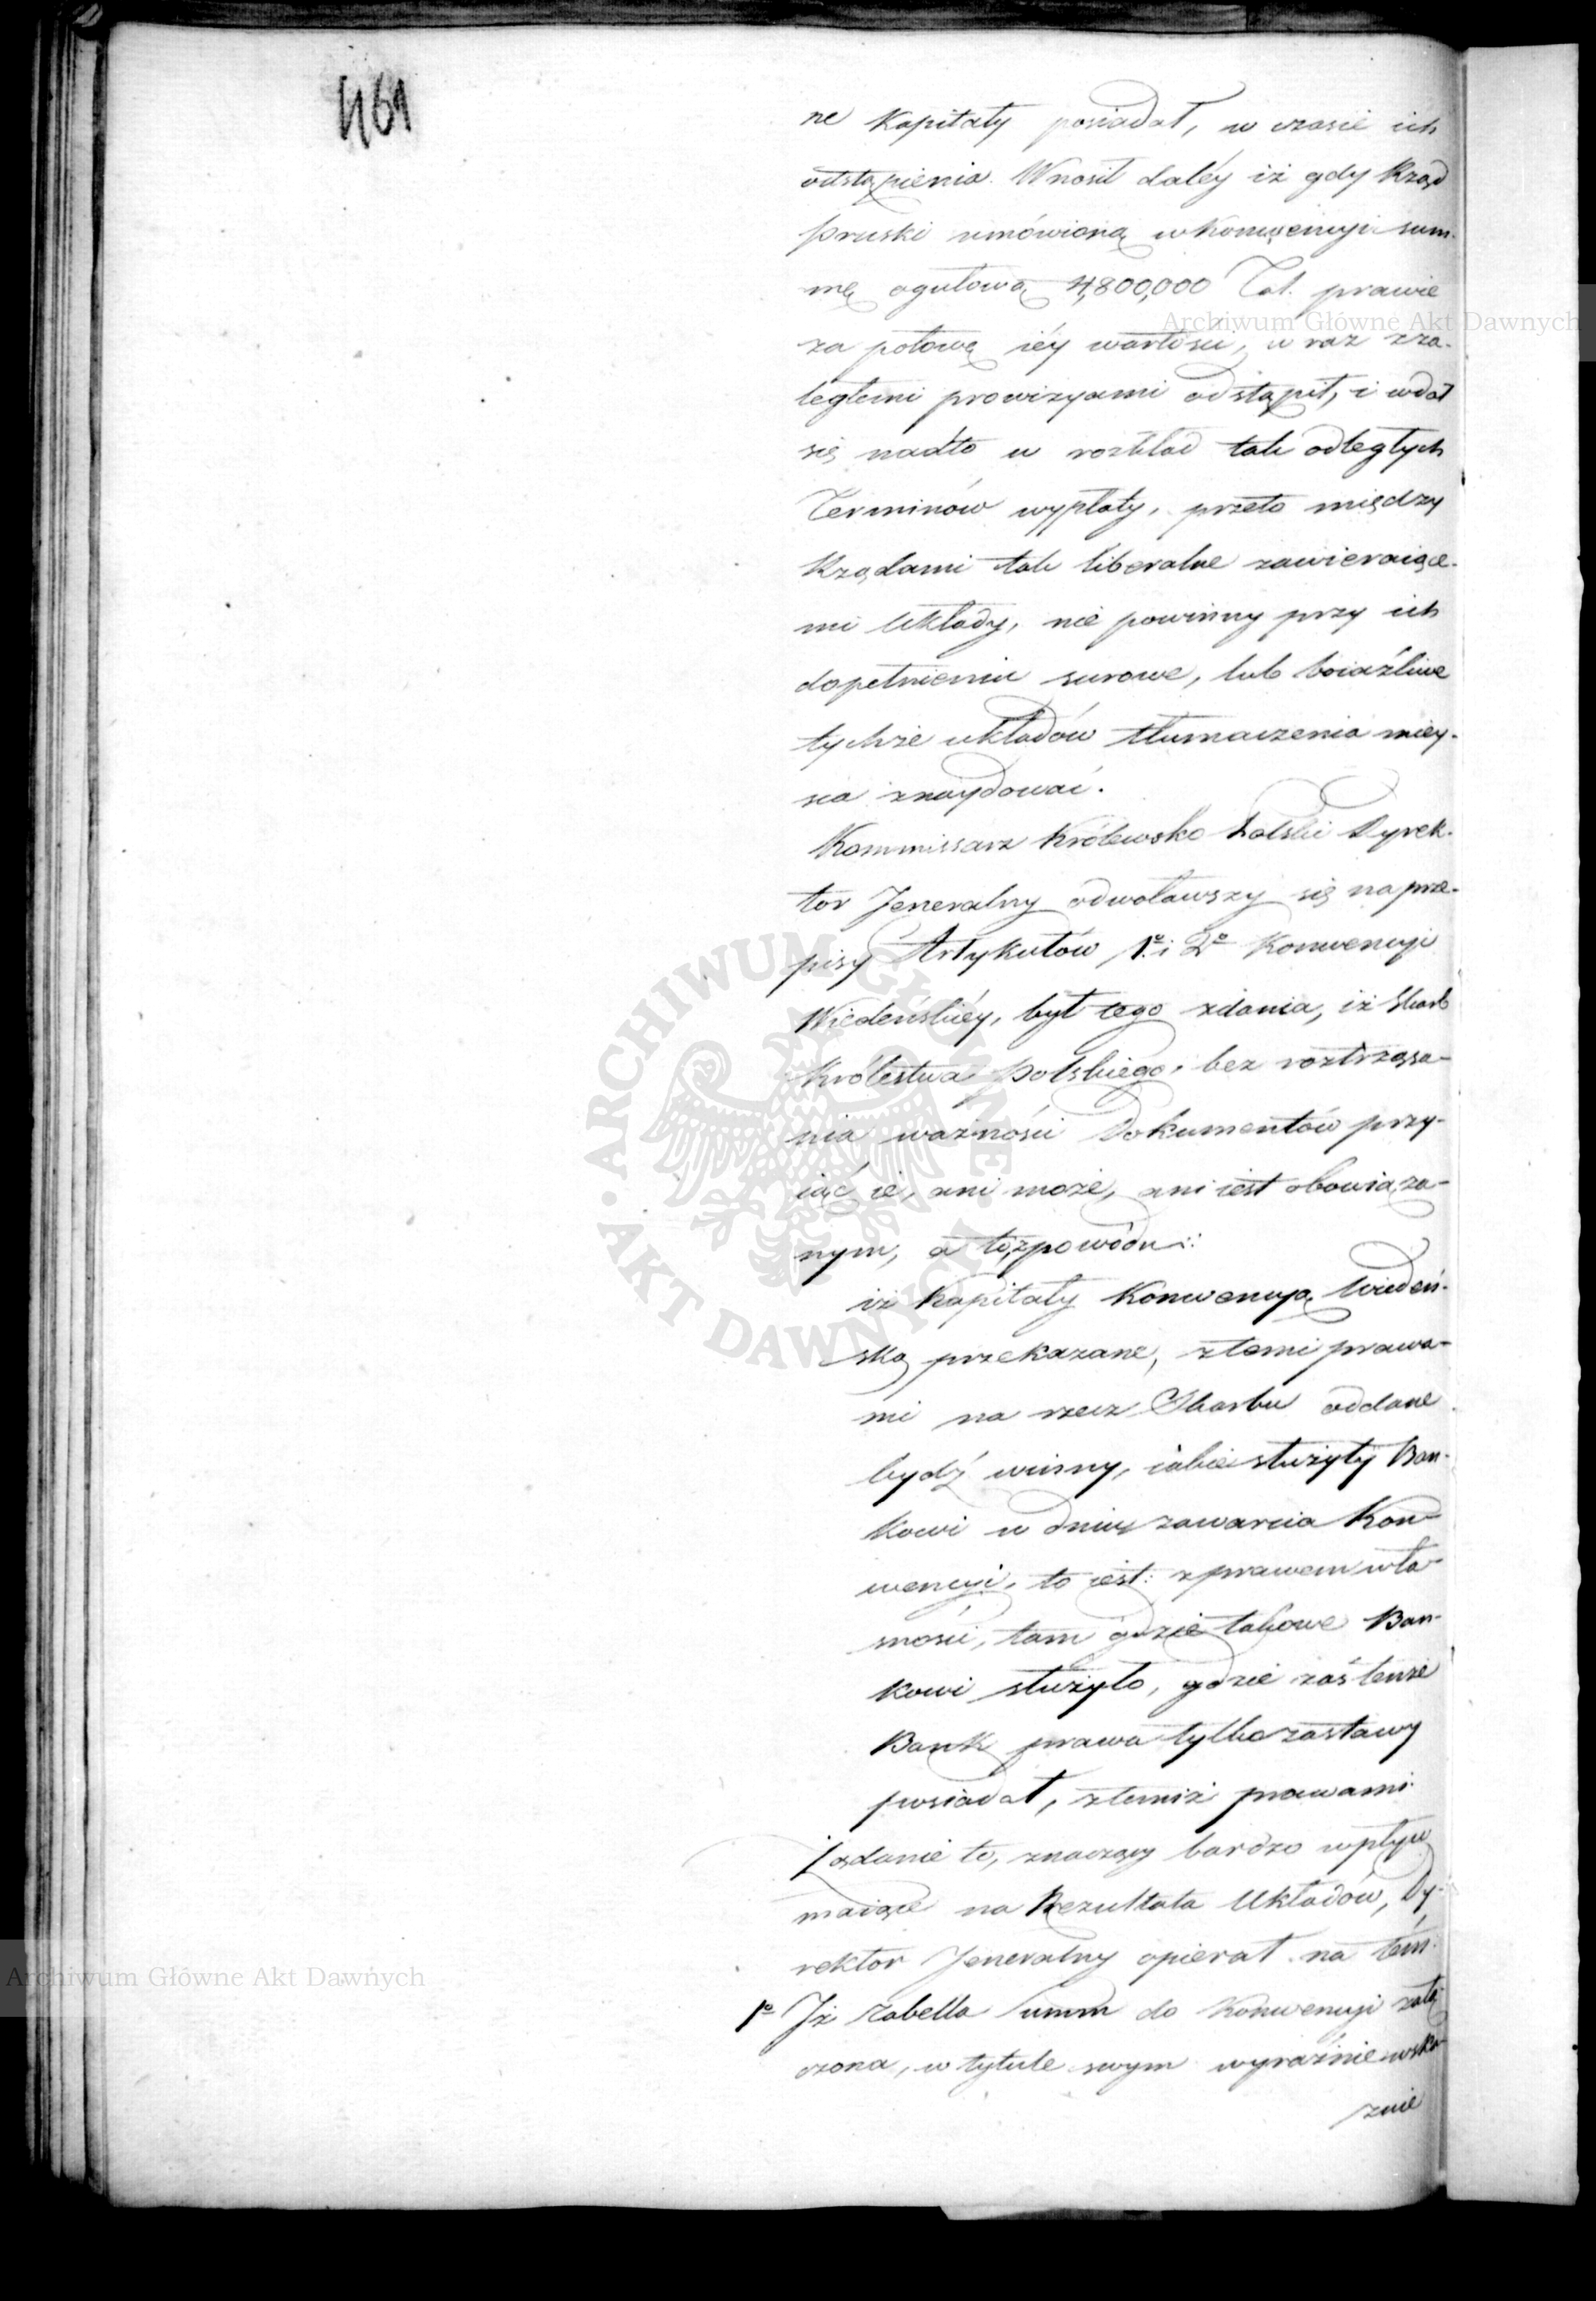 461
ne Kapitały posiadał, w czasie ich
odstąpienia. Wnosił daléy iż gdy Rząd
Pruski umówioną w Konwencyi sum-
mę ogułową 4,800,000 Tal. prawie
za połowę iéy wartości, w raz z za-
ległemi prowizyami odstąpił, i wdał
się nadto w rozkład tak odległych
Terminów wypłaty, przeto między
Rządami tak liberalne zawieraiące-
mi Układy, nie powinny przy ich
dopełnieniu surowe, lub boiaźliwe
tychże układów tłumaczenia miey-
sca znaydować.
Kommissarz Królewsko Polski Dyrek-
tor Jeneralny odwoławszy się na prze-
pisy Artykułów 1º i 2º Konwencyi
Wiedeńskiéy, był tego zdania, iż Skarb
Królestwa Polskiego, bez roztrząsa-
nia ważności Dokumentów przy-
iąć ie, ani może, ani iest obowiąza-
nym, a to z powodu:
iż Kapitały Konwencyą Wiedeń-
ską przekazane, z temi prawa-
mi na rzecz Skarbu oddane
bydź winny, iakie służyły Ban-
kowi w dniu zawarcia Kon-
wencyi, to iest: z prawem wła-
sności, tam gdzie takowe Ban-
kowi służyło, gdzie zaś tenże
Bank prawa tylko zastawy
posiadał, z temiż prawami.
Żądanie to, znaczący bardzo wpływ
maiące na Rezultata Układów, Dy-
rektor Jeneralny opierał na tém:
1º Iż Tabella Summ do Konwencyi załą-
czona, w tytule swym wyraźnie wska-
znie
Archiwum Główne Akt Dawnych
Archiwum Główne Akt Dawnych
ARCHIWUM GŁÓWNE AKT DAWNYCH